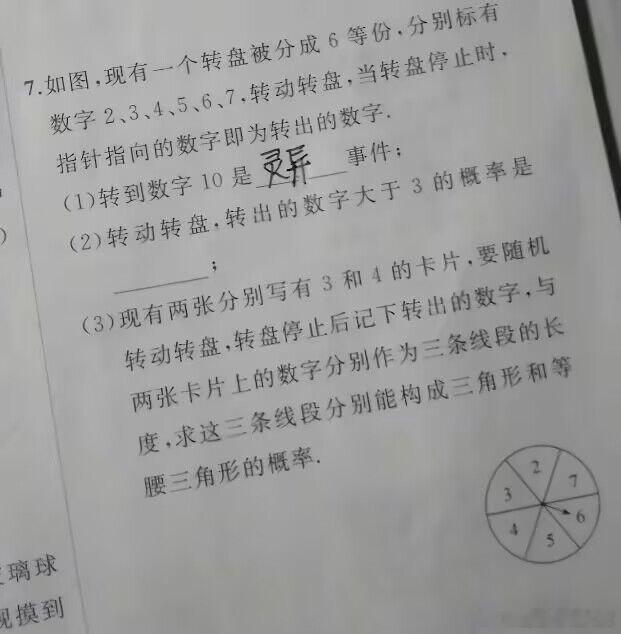 7.如图,现有一个转盘被分成6等份,分别标有
数字2、3、4、5、6、7,转动转盘,当转盘停止时,
指针指向的数字即为转出的数字.
(1)转到数字10是灵异事件;
(2)转动转盘,转出的数字大于3的概率是
;
(3)现有两张分别写有3和4的卡片,要随机
转动转盘,转盘停止后记下转出的数字,与
两张卡片上的数字分别作为三条线段的长
度,求这三条线段分别能构成三角形和等
腰三角形的概率.
2
7
3
6
4
5
璃球
摸到
)